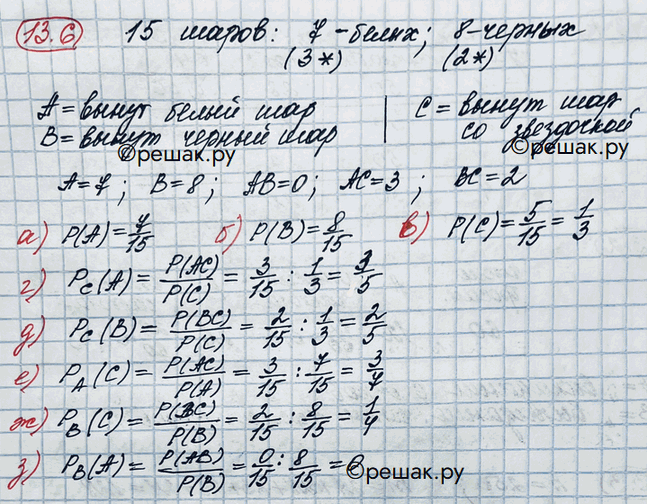 13.6 15 шаров: 7 - белых; 8-черных
(3*) (2*)
A = вынут белый шар
B = вынут черный шар
C = вынут шар
со звездочкой
©решак.ру ©решак.ру
A=7; B=8; AB=0; AC=3; BC=2
а) P(A)=7/15 б) P(B)=8/15 в) P(C)=5/15=1/3
г) P_C(A)=P(AC)/P(C)=3/15:1/3=3/5
д) P_C(B)=P(BC)/P(C)=2/15:1/3=2/5
е) P_A(C)=P(AC)/P(A)=3/15:7/15=3/7
ж) P_B(C)=P(BC)/P(B)=2/15:8/15=1/4
з) P_B(A)=P(AB)/P(B)=0/15:8/15=0
©решак.ру